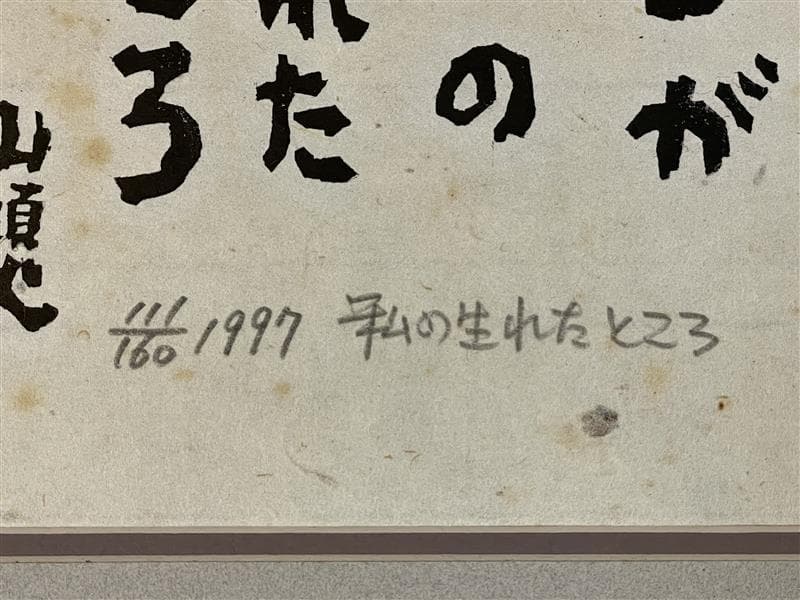 が
の
れた
ろ
山頭火
111/160 1997 私の生れたところ